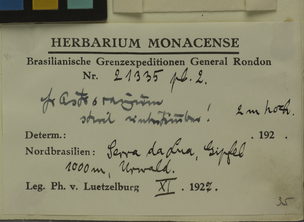 HERBARIUM MONACENSE
Brasilianische Grenzexpeditionen General Rondon
Nr. 21335 pl. 2.
2 m hoch.
Determ.: . 192 .
Nordbrasilien: Serra da Lua, Gipfel
1000 m, Urwald.
Leg. Ph. v. Luetzelburg XI. 1927.
35